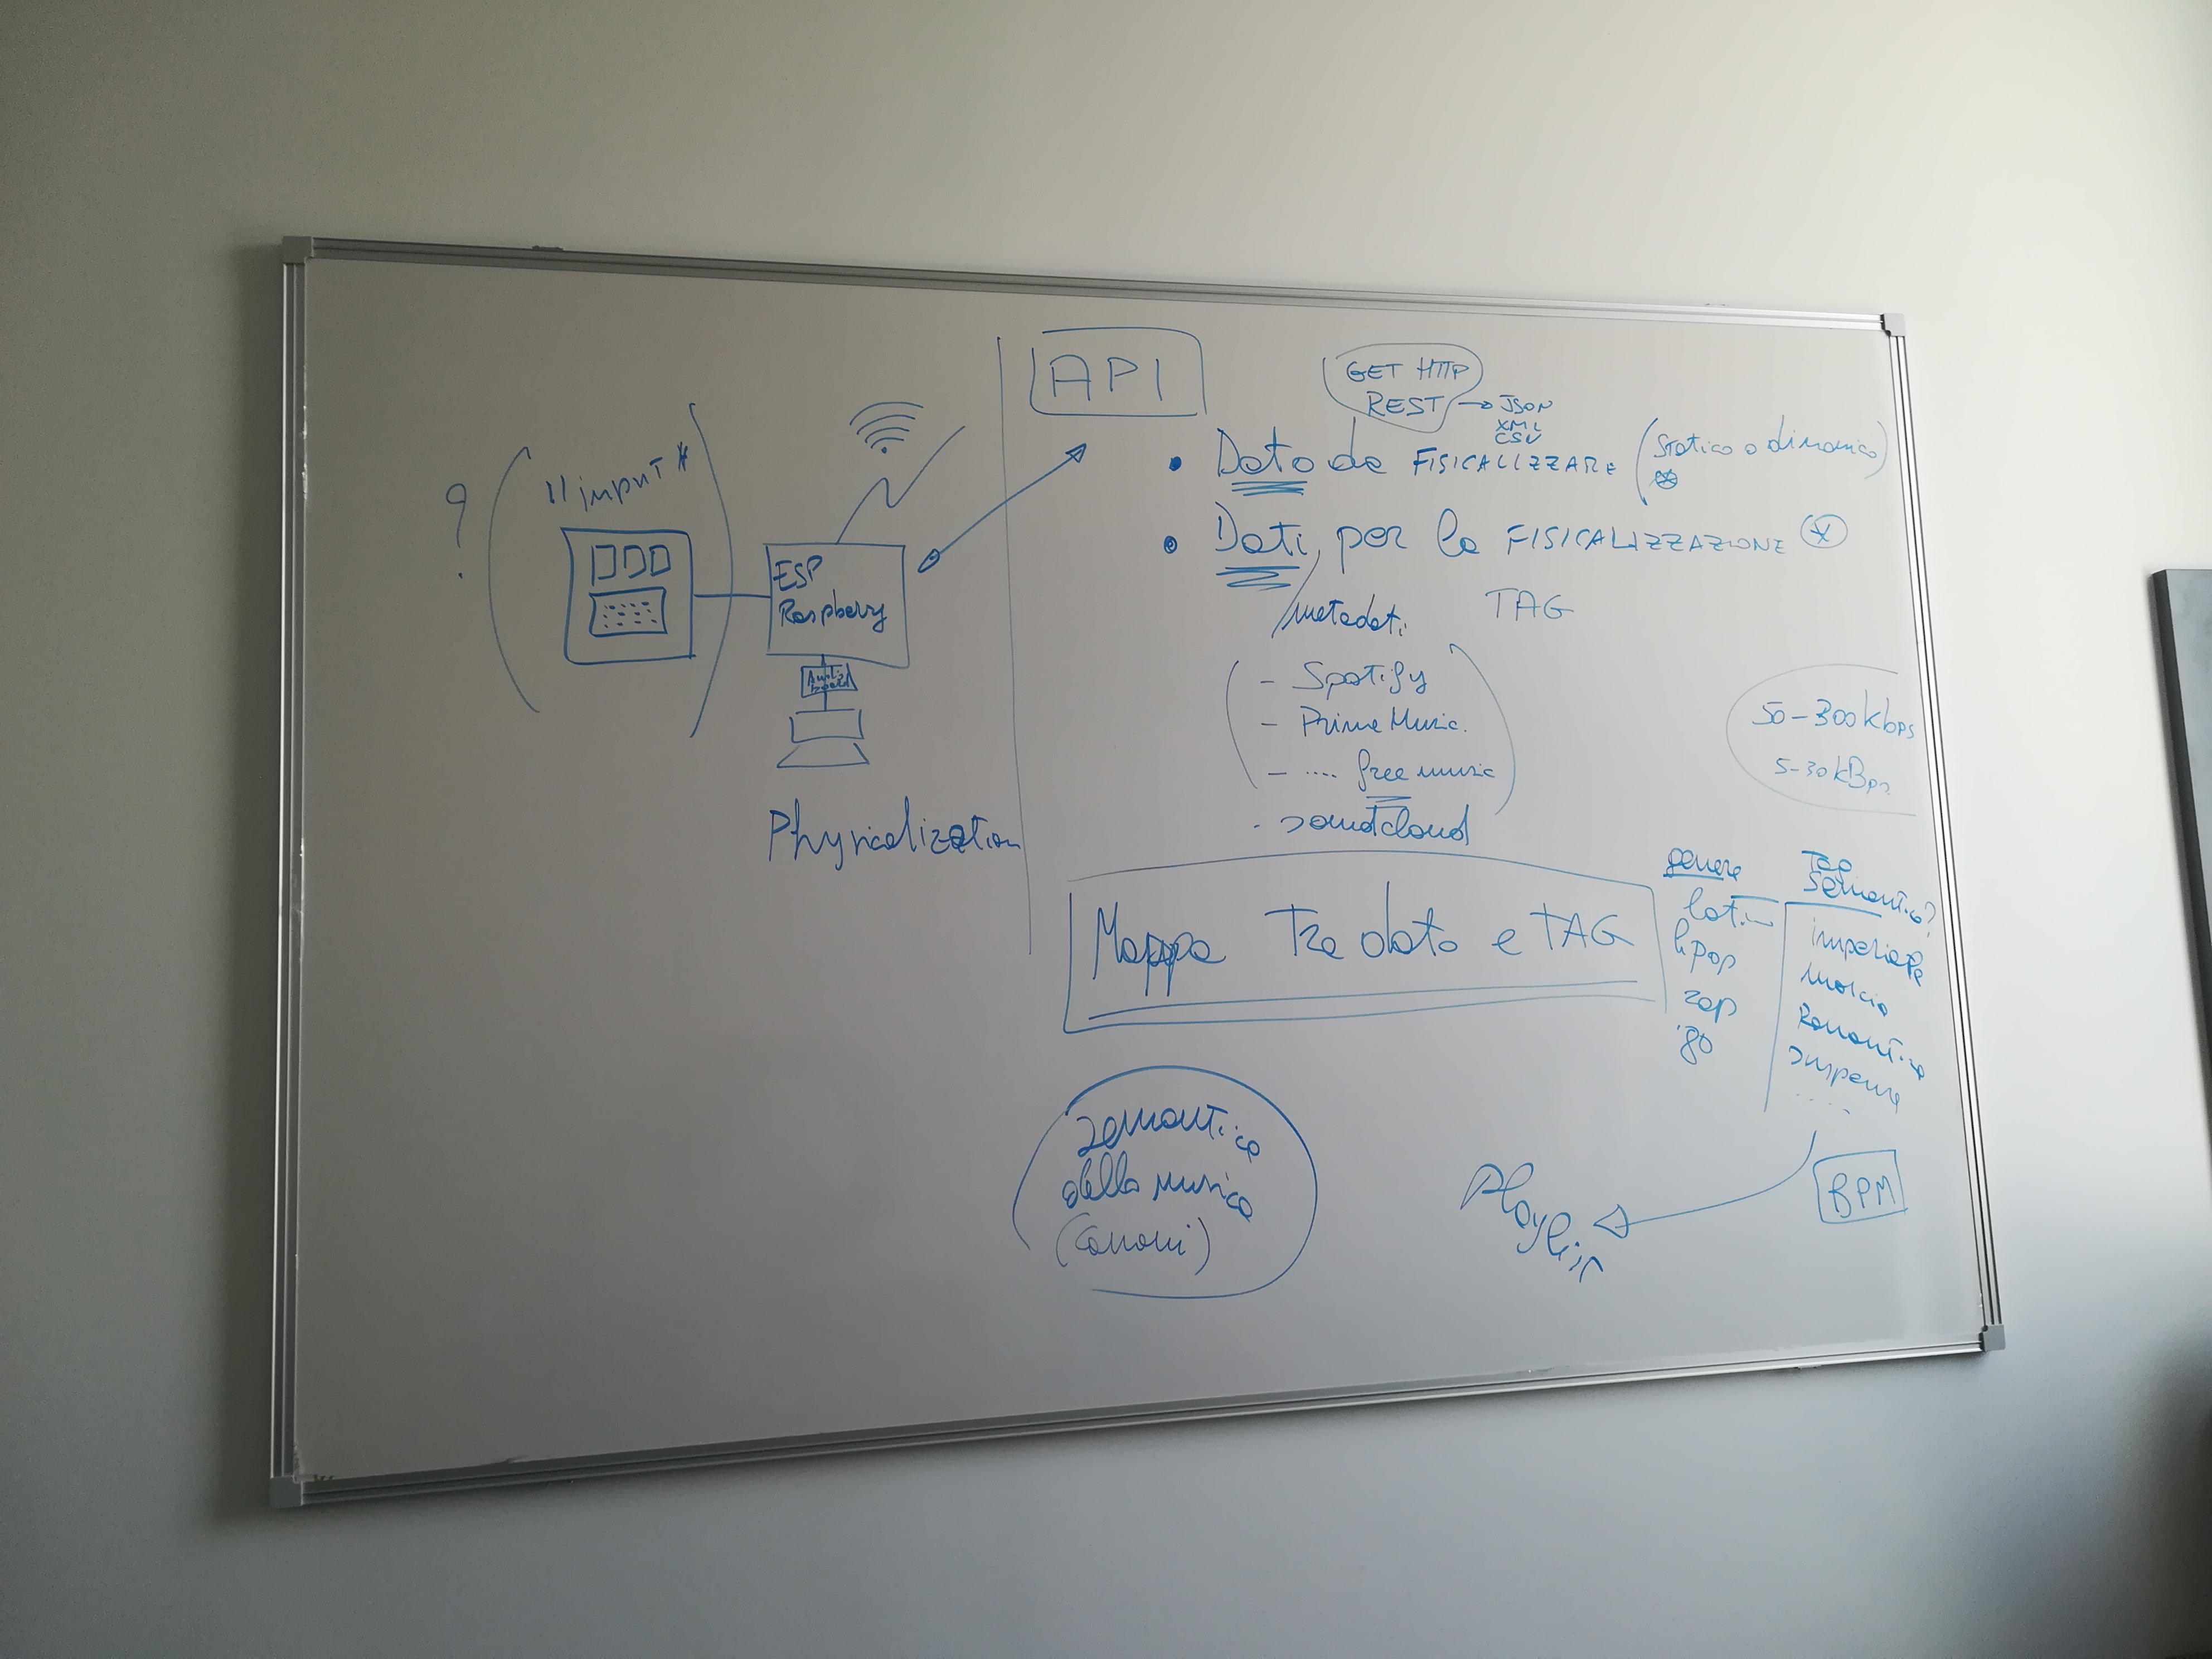 ?
"input"
ESP
Raspberry
Audio
board
Physicalization
API
GET HTTP
REST → JSON
XML
CSV
• Dato da FISICALIZZARE (statico o dinamico)
• Dati per la FISICALIZZAZIONE *
metadati
TAG
- Spotify
- Prime Music.
- .... free music
. soundcloud
50-300 kbps
5-30 kBps
Mappa Tra dato e TAG
genere
latin
kpop
rap
'80
Tag
Semantico?
imperiale
Romantico
suspense
.....
BPM
Playlist
semantica
della musica
(canoni)